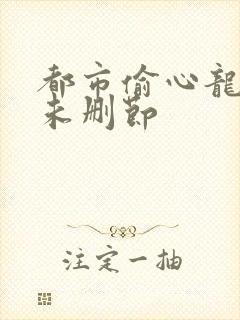 都市偷心龍
未删節
注定一抽